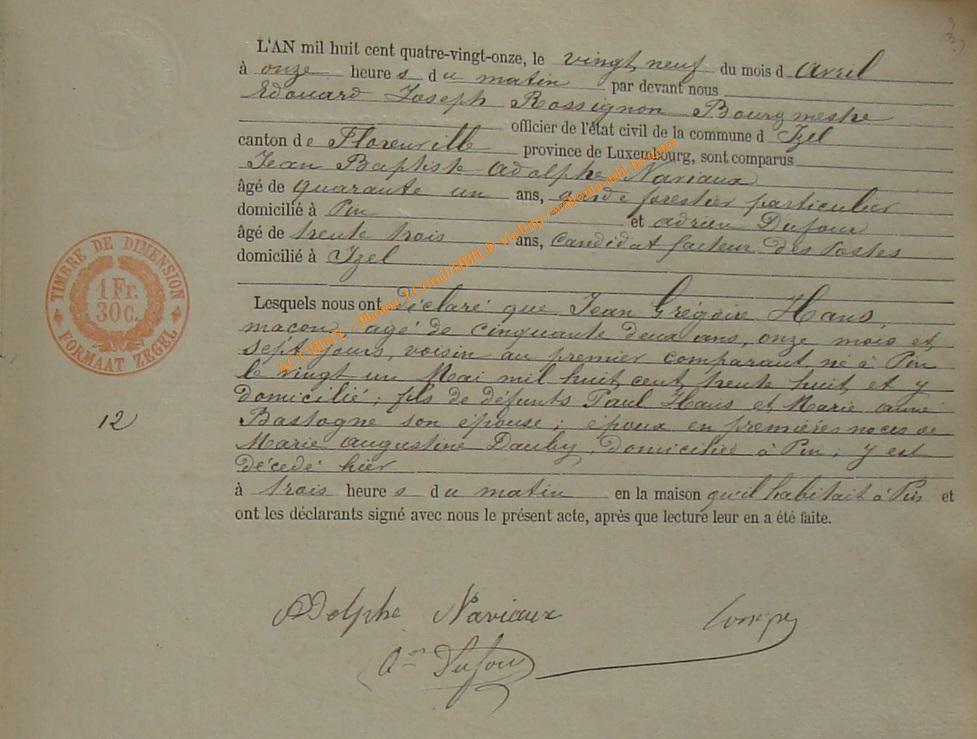 L'AN mil huit cent quatre-vingt-onze, le vingt neuf du mois d avril
à onze heure s du matin par devant nous
Edouard Joseph Rossignon Bourgmestre
officier de l'état civil de la commune d Izel
canton de Florenville province de Luxembourg, sont comparus
Jean Baptiste Adolphe Naviaux
âgé de quarante un ans, garde forestier particulier
domicilié à Pin et adrien Dufour
âgé de trente trois ans, candidat facteur des Postes
domicilié à Izel
Lesquels nous ont déclaré que Jean Grégoire Hans,
maçon, agé de cinquante deux ans, onze mois et
sept jours, voisin au premier comparant, né à Pin
le vingt un Mai mil huit cent trente huit et y
domicilié; fils de défunts Paul Hans et Marie anne
Bastogne son épouse; époux en premières noces de
Marie augustine Dauby, domiciliée à Pin, y est
décédé hier
à trois heure s du matin en la maison qu'il habitait à Pin et
ont les déclarants signé avec nous le présent acte, après que lecture leur en a été faite.
TIMBRE DE DIMENSION
1 Fr.
30 C.
FORMAAT ZEGEL
12
Adolphe Naviaux
Dufour